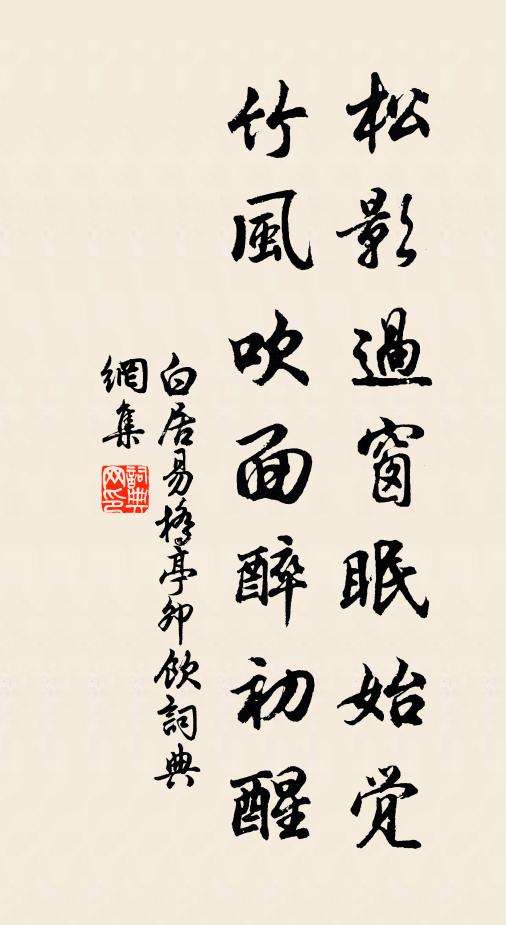 松影過窗眠始觉
竹風吹面醉初醒
白居易橋亭卯飲詞典
網集
詞典
网印